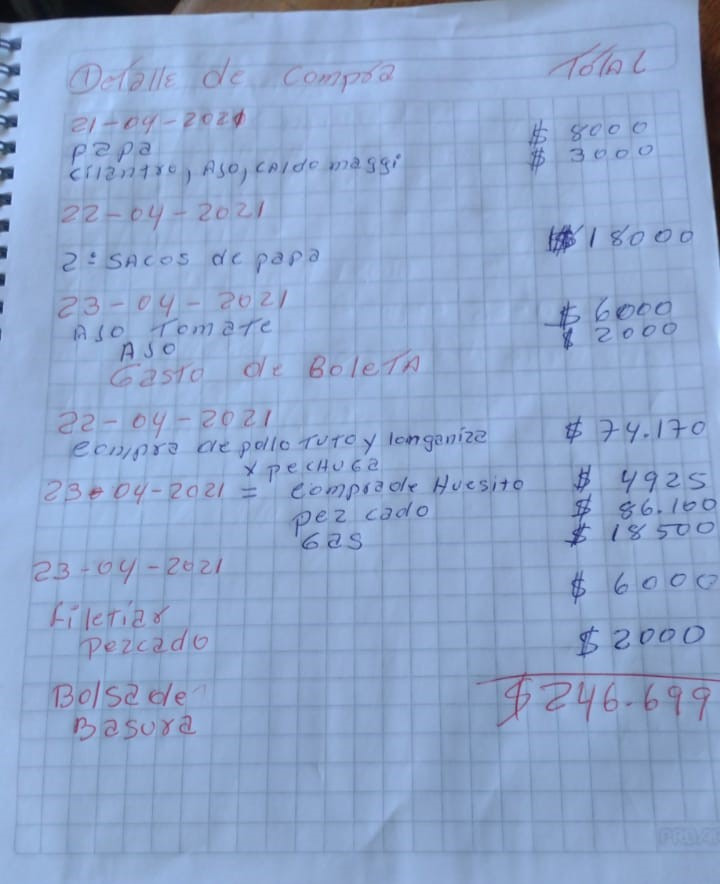 Detalle de Compra TOTAL
21-04-2021
papa $ 8000
cilantro, Aso, caldo maggi $ 3000
22-04-2021
2 = SACOS de papa $ 18000
23-04-2021
Aso Tomate $ 6000
Aso $ 2000
Gasto de BoleTA
22-04-2021
compra de pollo TUTO y longaniza $ 74.170
x pecHuga
23-04-2021 = compra de Huesito $ 4925
pezcado $ 86.100
Gas $ 18500
23-04-2021
Filetiar $ 6000
pezcado $ 2000
$ 246.699
Bolsa de
Basura